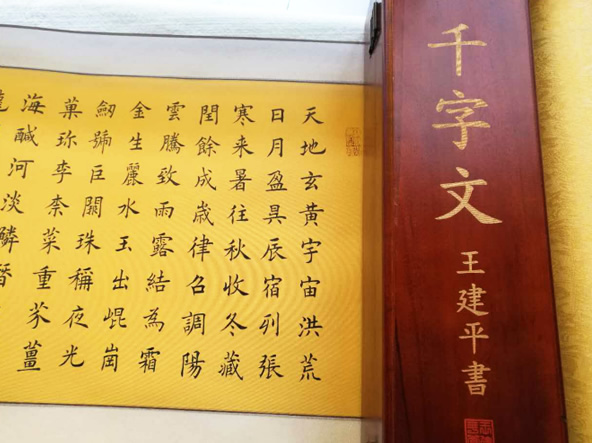 千字文
王建平書
天地玄黃宇宙洪荒
日月盈昃辰宿列張
寒来暑往秋收冬藏
閏餘成歲律召調陽
雲騰致雨露結為霜
金生麗水玉出崐崗
劒號巨闕珠稱夜光
菓珎李柰菜重芥薑
海醎河淡鱗